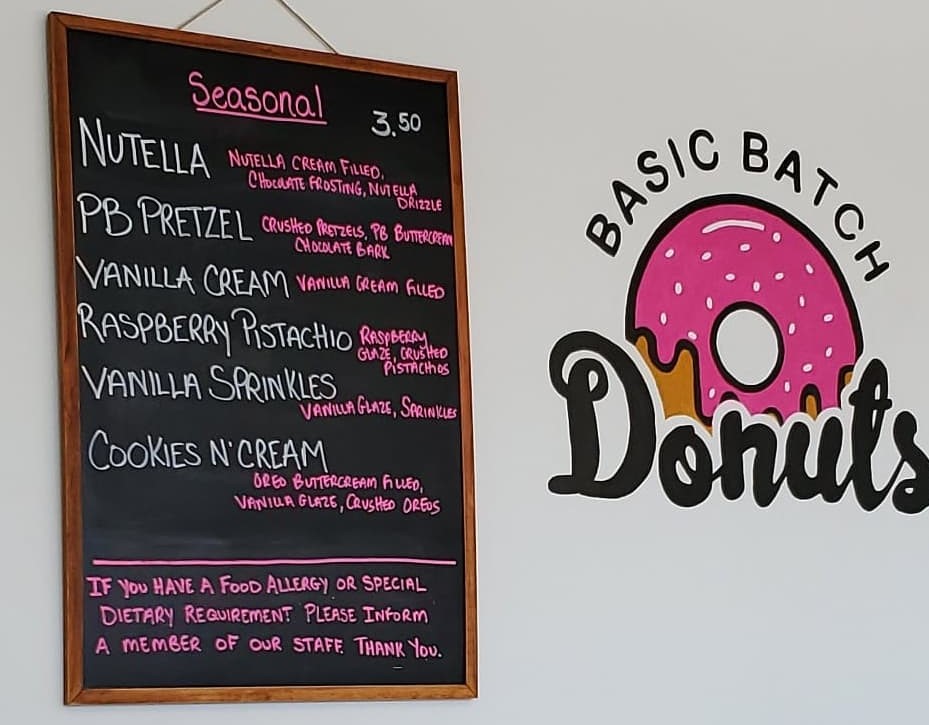 Seasonal
3.50
NUTELLA NUTELLA CREAM FILLED,
CHOCOLATE FROSTING, NUTELLA
DRIZZLE
PB PRETZEL CRUSHED PRETZELS, PB BUTTERCREAM
CHOCOLATE BARK
VANILLA CREAM VANILLA CREAM FILLED
RASPBERRY PISTACHIO RASPBERRY
GLAZE, CRUSHED
PISTACHIOS
VANILLA SPRINKLES
VANILLA GLAZE, SPRINKLES
COOKIES N' CREAM
OREO BUTTERCREAM FILLED,
VANILLA GLAZE, CRUSHED OREOS
IF YOU HAVE A FOOD ALLERGY OR SPECIAL
DIETARY REQUIREMENT PLEASE INFORM
A MEMBER OF OUR STAFF. THANK YOU.
BASIC BATCH
Donuts